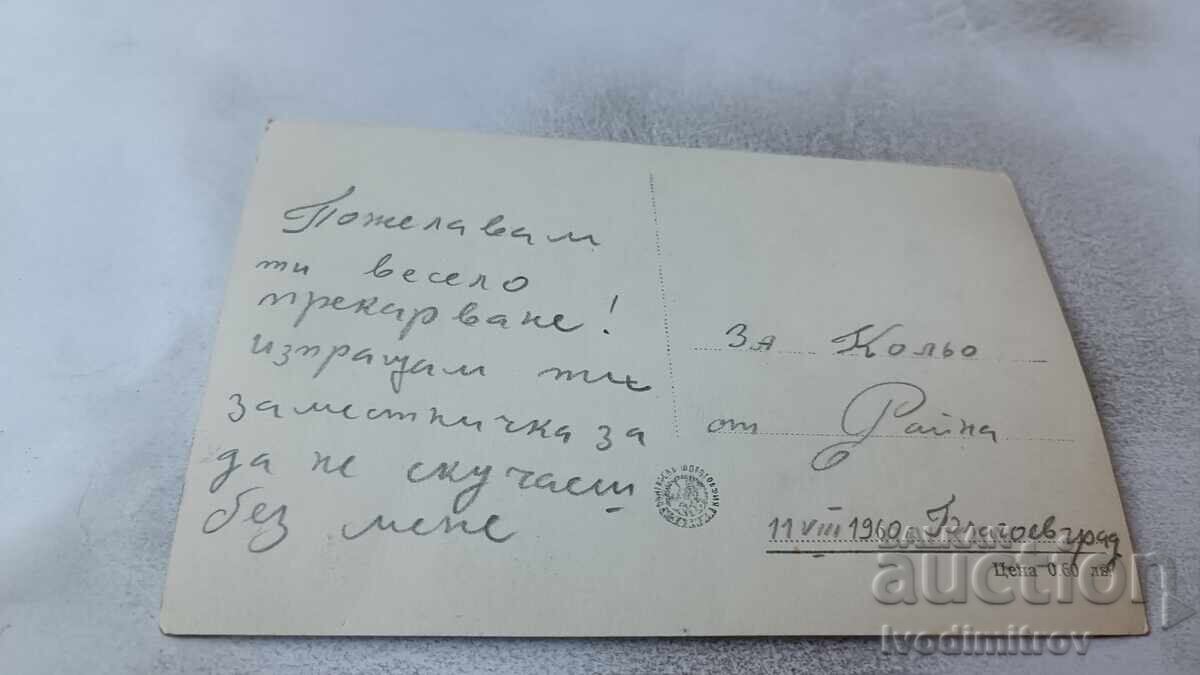 Пожелавам
ти весело
прекарване!
изпращам ти
заместничка за
да не скучаеш
без мене
За Кольо
от Райна
11 VIII 1960 Благоевград
Цена 0.60 лв.
BALKAN
auction
Ivodimitrov